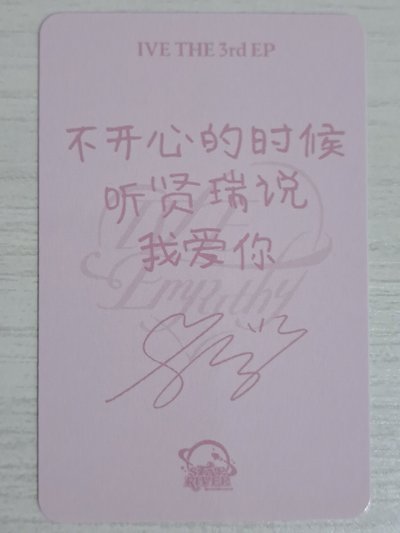 IVE THE 3rd EP
不开心的时候
听贤瑞说
我爱你
IVE
Empathy
STAR
RIVER